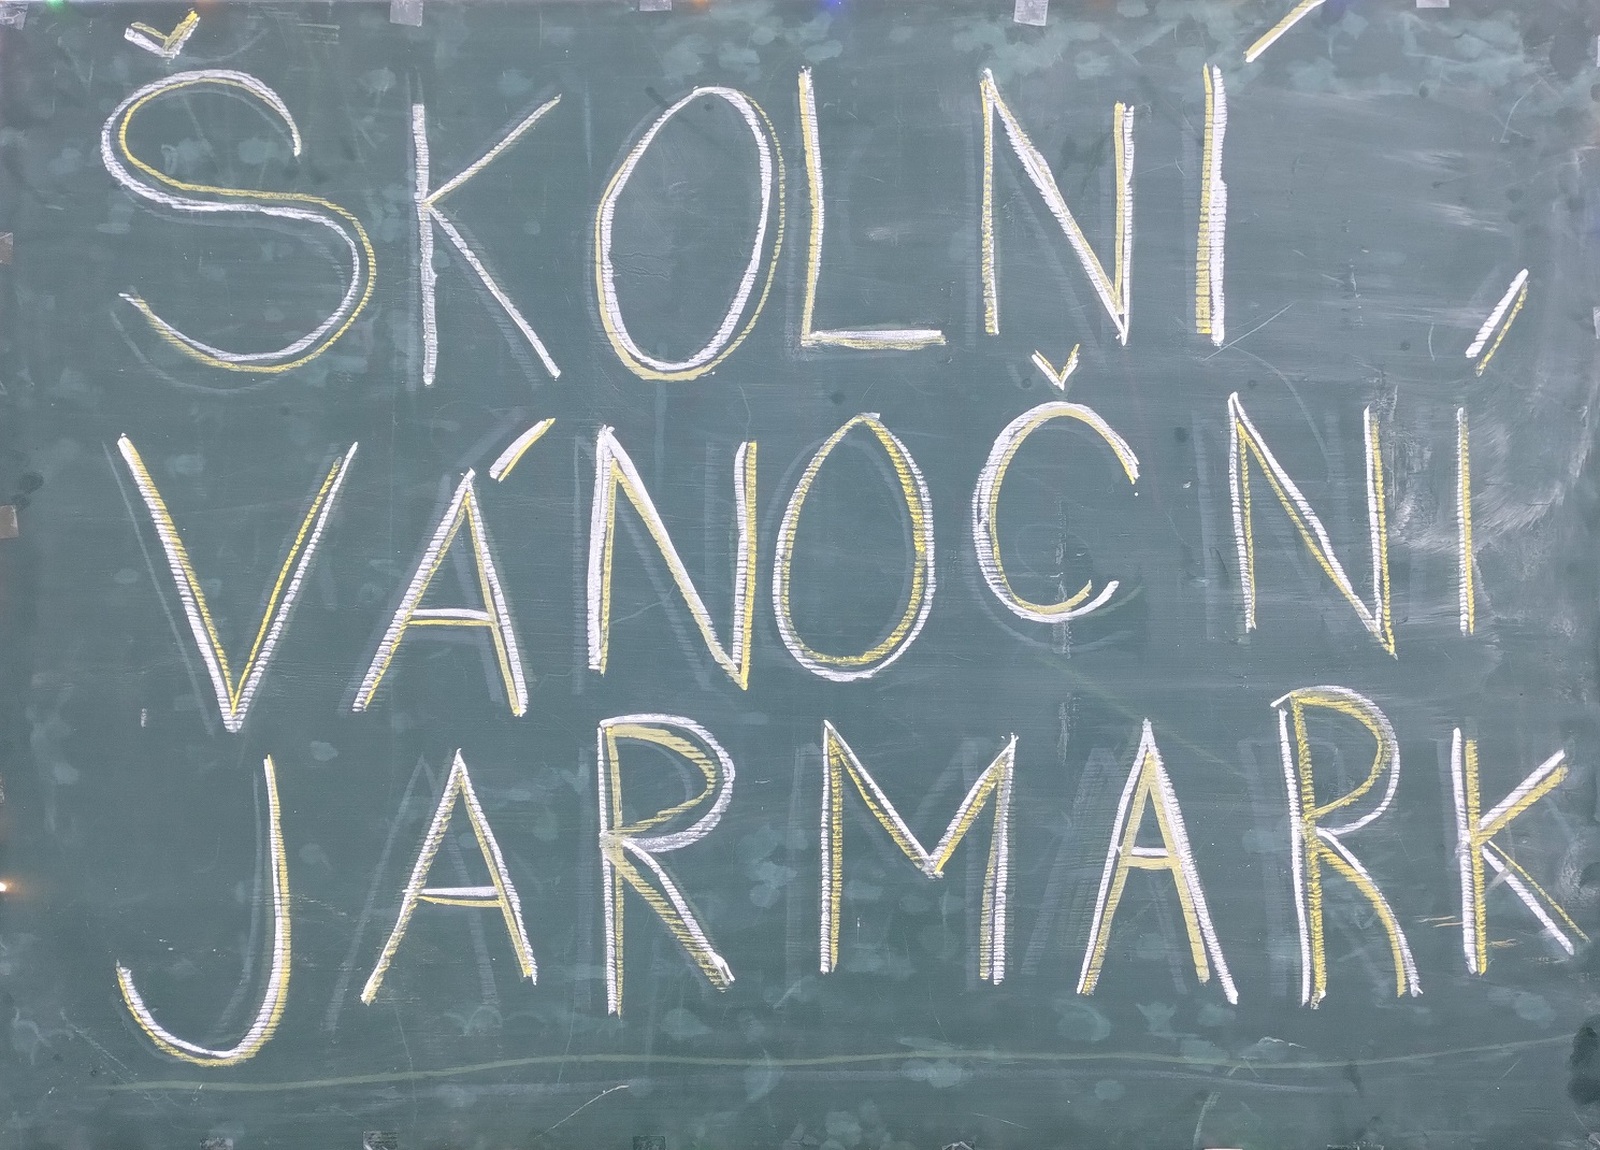 ŠKOLNÍ
VÁNOČNÍ
JARMARK